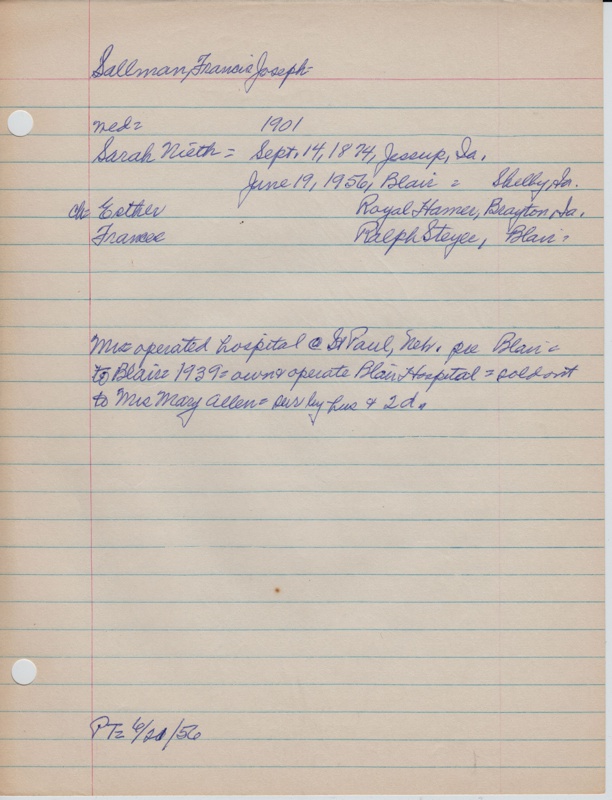 Sallman, Francis Joseph-
med= 1901
Sarah Nieth = Sept. 14, 1874, Jessup, Ia.
June 19, 1956, Blair = Shelby, Ia.
ch= Esther Royal Hamer, Brayton, Ia.
Frances Ralph Steyer, Blair=
Mrs= operated hospital @ St Paul, Neb. pre Blair=
to Blair= 1939= own & operate Blair Hospital = sold out
to Mrs Mary Allen= sur by hus & 2 d.
PT= 6/21/56